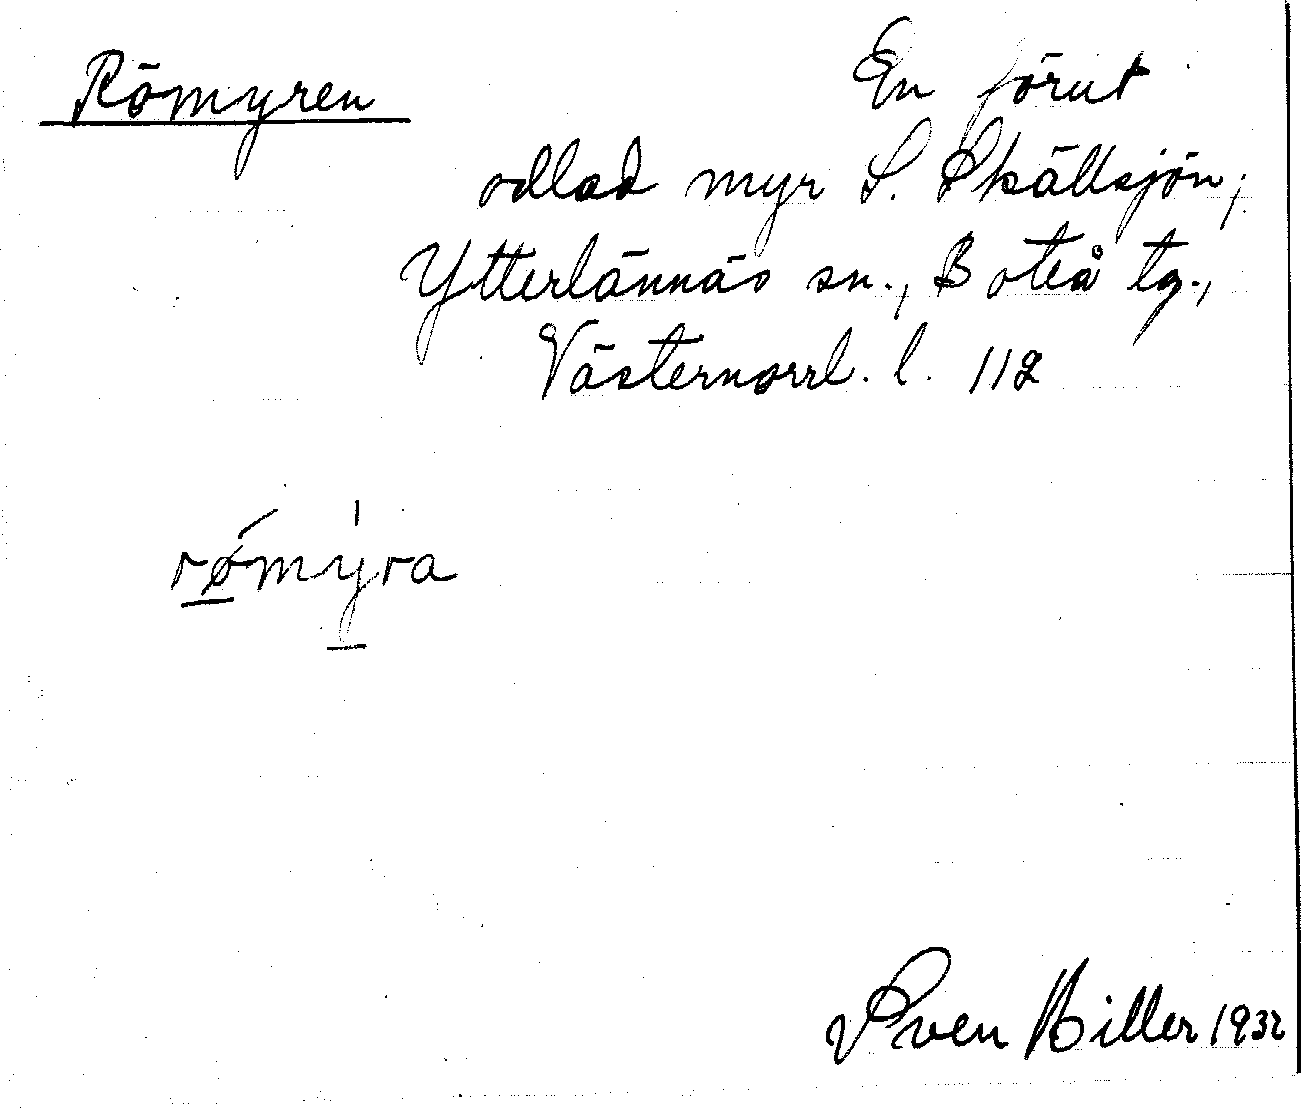 Römyren
En förut
odlad myr S. Skällsjön,
Ytterlännäs sn., Boteå tg.,
Västernorrl. l. 112
rømyra
Sven Hiller 1932